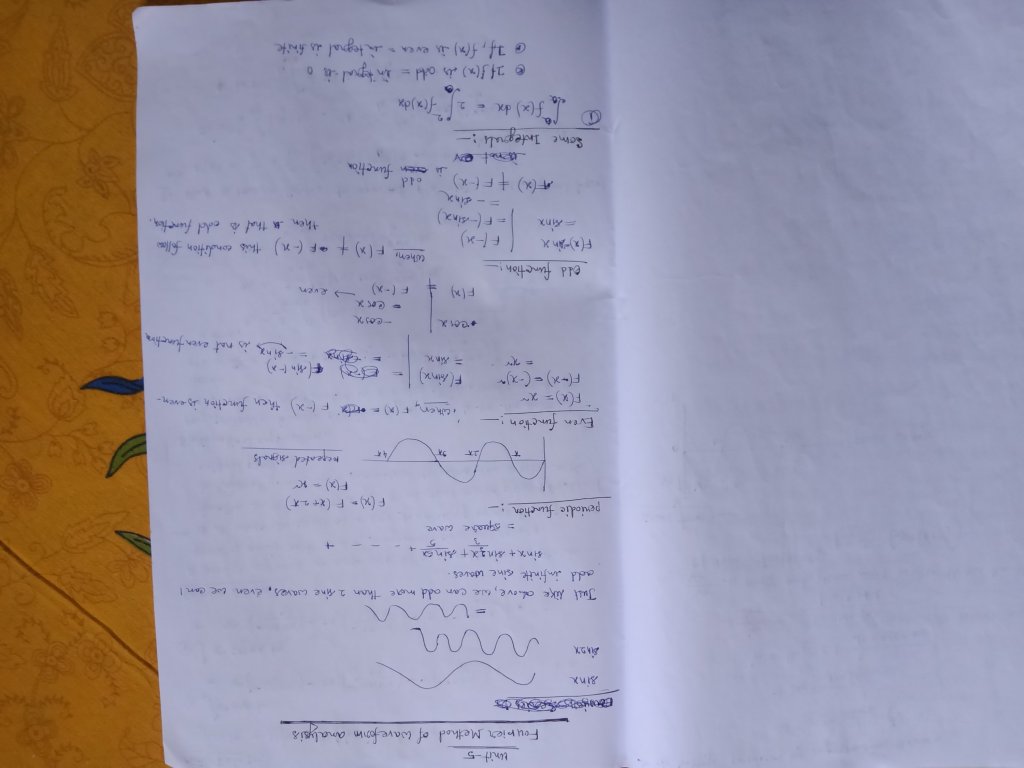 Unit-5
Fourier Method of waveform analysis
sinx
sin3x
=
Just like above, we can add more than 2 sine waves, even we can!
add infinite sine waves.
sinx + sin3x/3 + sin5x/5 + - - - - +
= square wave
periodic function :-
F(x) = F(x+2π)
F(x) = x~
π 2π 3π 4π repeated signals
Even function :- when, F(x) = F(-x) then function is even-
F(x) = x~
F(-x) = (-x)~ F(sinx) = F(sin(-x)
= x~ = sinx = = -sinx is not even function
cosx -cosx
= cosx
F(x) = F(-x) → even
Odd function :-
when, F(x) ≠ F(-x) this condition follow
then that is odd function.
F(x)=sinx F(-x)
= sinx = F(-sinx)
= -sinx
F(x) ≠ F(-x) odd
is function
Some Integrals :-
① f(x) dx = 2 f(x)dx
If f(x) is odd = integral is 0
If, f(x) is even = integral is finite